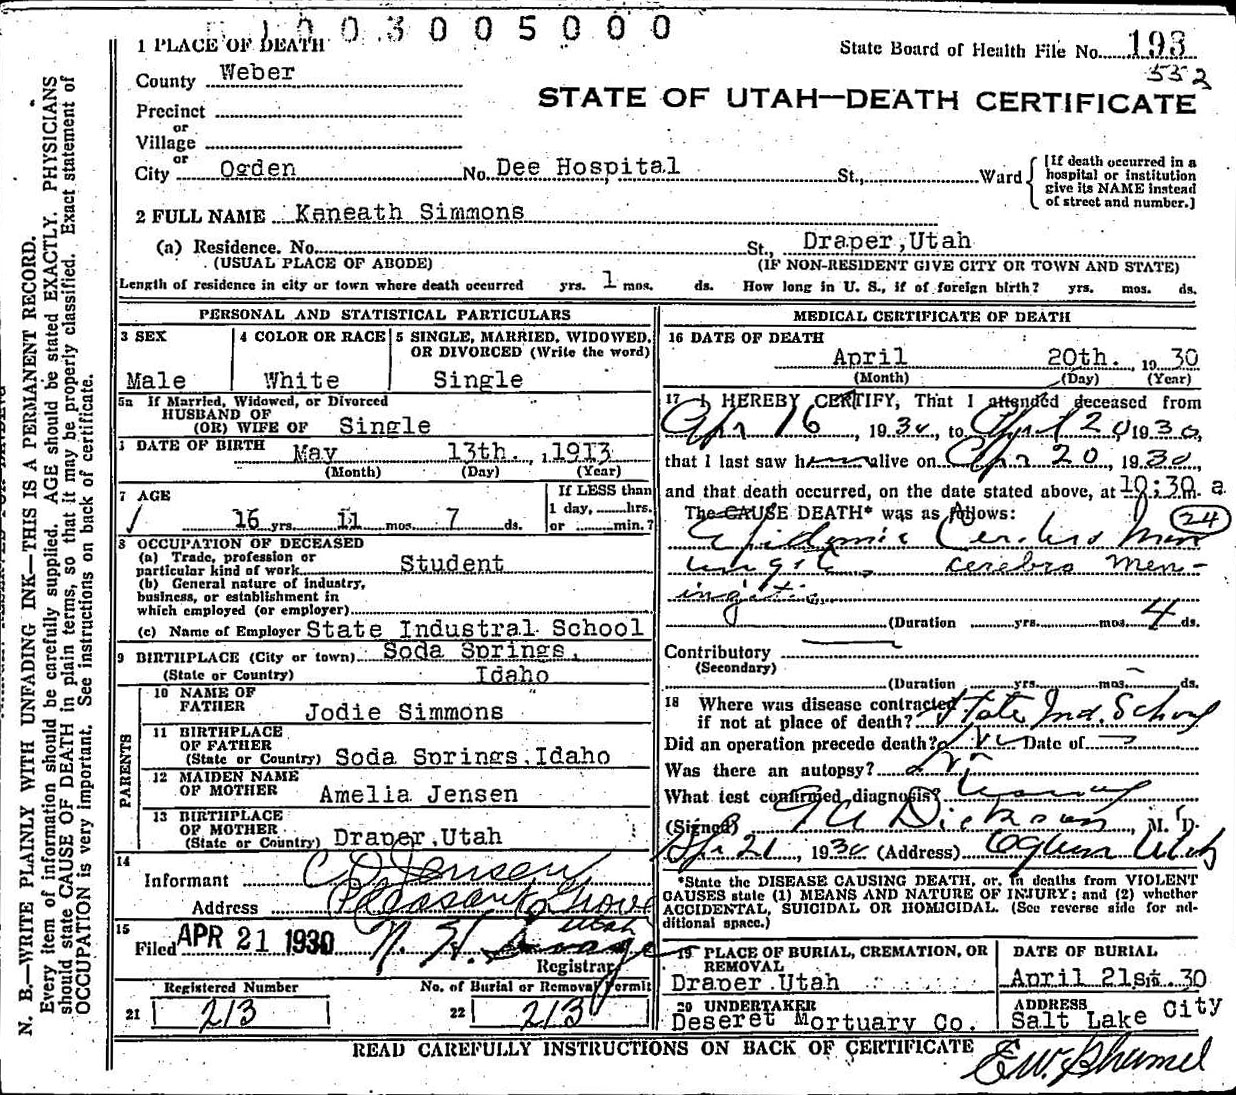 003005000
1 PLACE OF DEATH
State Board of Health File No. 193
552
County Weber
STATE OF UTAH—DEATH CERTIFICATE
Precinct
or
Village
or
City Ogden No. Dee Hospital St., Ward
[If death occurred in a hospital or institution give its NAME instead of street and number.]
2 FULL NAME Keneath Simmons
(a) Residence. No. St., Draper, Utah
(USUAL PLACE OF ABODE) (IF NON-RESIDENT GIVE CITY OR TOWN AND STATE)
Length of residence in city or town where death occurred yrs. 1 mos. ds. How long in U. S., if of foreign birth? yrs. mos. ds.
PERSONAL AND STATISTICAL PARTICULARS
3 SEX
Male
4 COLOR OR RACE
White
5 SINGLE, MARRIED, WIDOWED, OR DIVORCED (Write the word)
Single
5a If Married, Widowed, or Divorced
HUSBAND OF
(OR) WIFE OF Single
DATE OF BIRTH May 13th. , 1913
(Month) (Day) (Year)
7 AGE
16 yrs. 11 mos. 7 ds.
If LESS than
1 day, hrs.
or min.?
8 OCCUPATION OF DECEASED
(a) Trade, profession or
particular kind of work Student
(b) General nature of industry,
business, or establishment in
which employed (or employer)
(c) Name of Employer State Industral School
9 BIRTHPLACE (City or town) Soda Springs,
(State or Country) Idaho
PARENTS
10 NAME OF
FATHER Jodie Simmons
11 BIRTHPLACE
OF FATHER
(State or Country) Soda Springs, Idaho
12 MAIDEN NAME
OF MOTHER Amelia Jensen
13 BIRTHPLACE
OF MOTHER
(State or Country) Draper, Utah
14
Informant C D Jensen
Address Pleasant Grove
Utah
15
Filed APR 21 1930 Registrar
Registered Number
21 213
No. of Burial or Removal Permit
22 213
MEDICAL CERTIFICATE OF DEATH
16 DATE OF DEATH
April 20th. , 1930
(Month) (Day) (Year)
17 I HEREBY CERTIFY, That I attended deceased from
Apr 16, 1930, to April 20, 1930,
that I last saw him alive on Apr 20, 1930,
and that death occurred, on the date stated above, at 10:30 m. a
The CAUSE DEATH* was as follows:
24
Epidemic Cerebro Men
ingitis, cerebro men-
ingitis
(Duration yrs. mos. 4 ds.
Contributory
(Secondary)
(Duration yrs. mos. ds.
18 Where was disease contracted
if not at place of death? State Ind. School
Did an operation precede death? No Date of
Was there an autopsy? No
What test confirmed diagnosis?
(Signed) Dickson, M. D.
Apr 21, 1930 (Address) Ogden Utah
*State the DISEASE CAUSING DEATH, or, in deaths from VIOLENT
CAUSES state (1) MEANS AND NATURE OF INJURY; and (2) whether
ACCIDENTAL, SUICIDAL OR HOMICIDAL. (See reverse side for ad-
ditional space.)
19 PLACE OF BURIAL, CREMATION, OR
REMOVAL
Draper Utah
DATE OF BURIAL
April 21st. 30
20 UNDERTAKER
Deseret Mortuary Co.
ADDRESS
Salt Lake City
READ CAREFULLY INSTRUCTIONS ON BACK OF CERTIFICATE
N. B.—WRITE PLAINLY WITH UNFADING INK—THIS IS A PERMANENT RECORD.
Every item of information should be carefully supplied. AGE should be stated EXACTLY. PHYSICIANS
should state CAUSE OF DEATH in plain terms, so that it may be properly classified. Exact statement of
OCCUPATION is very important. See instructions on back of certificate.